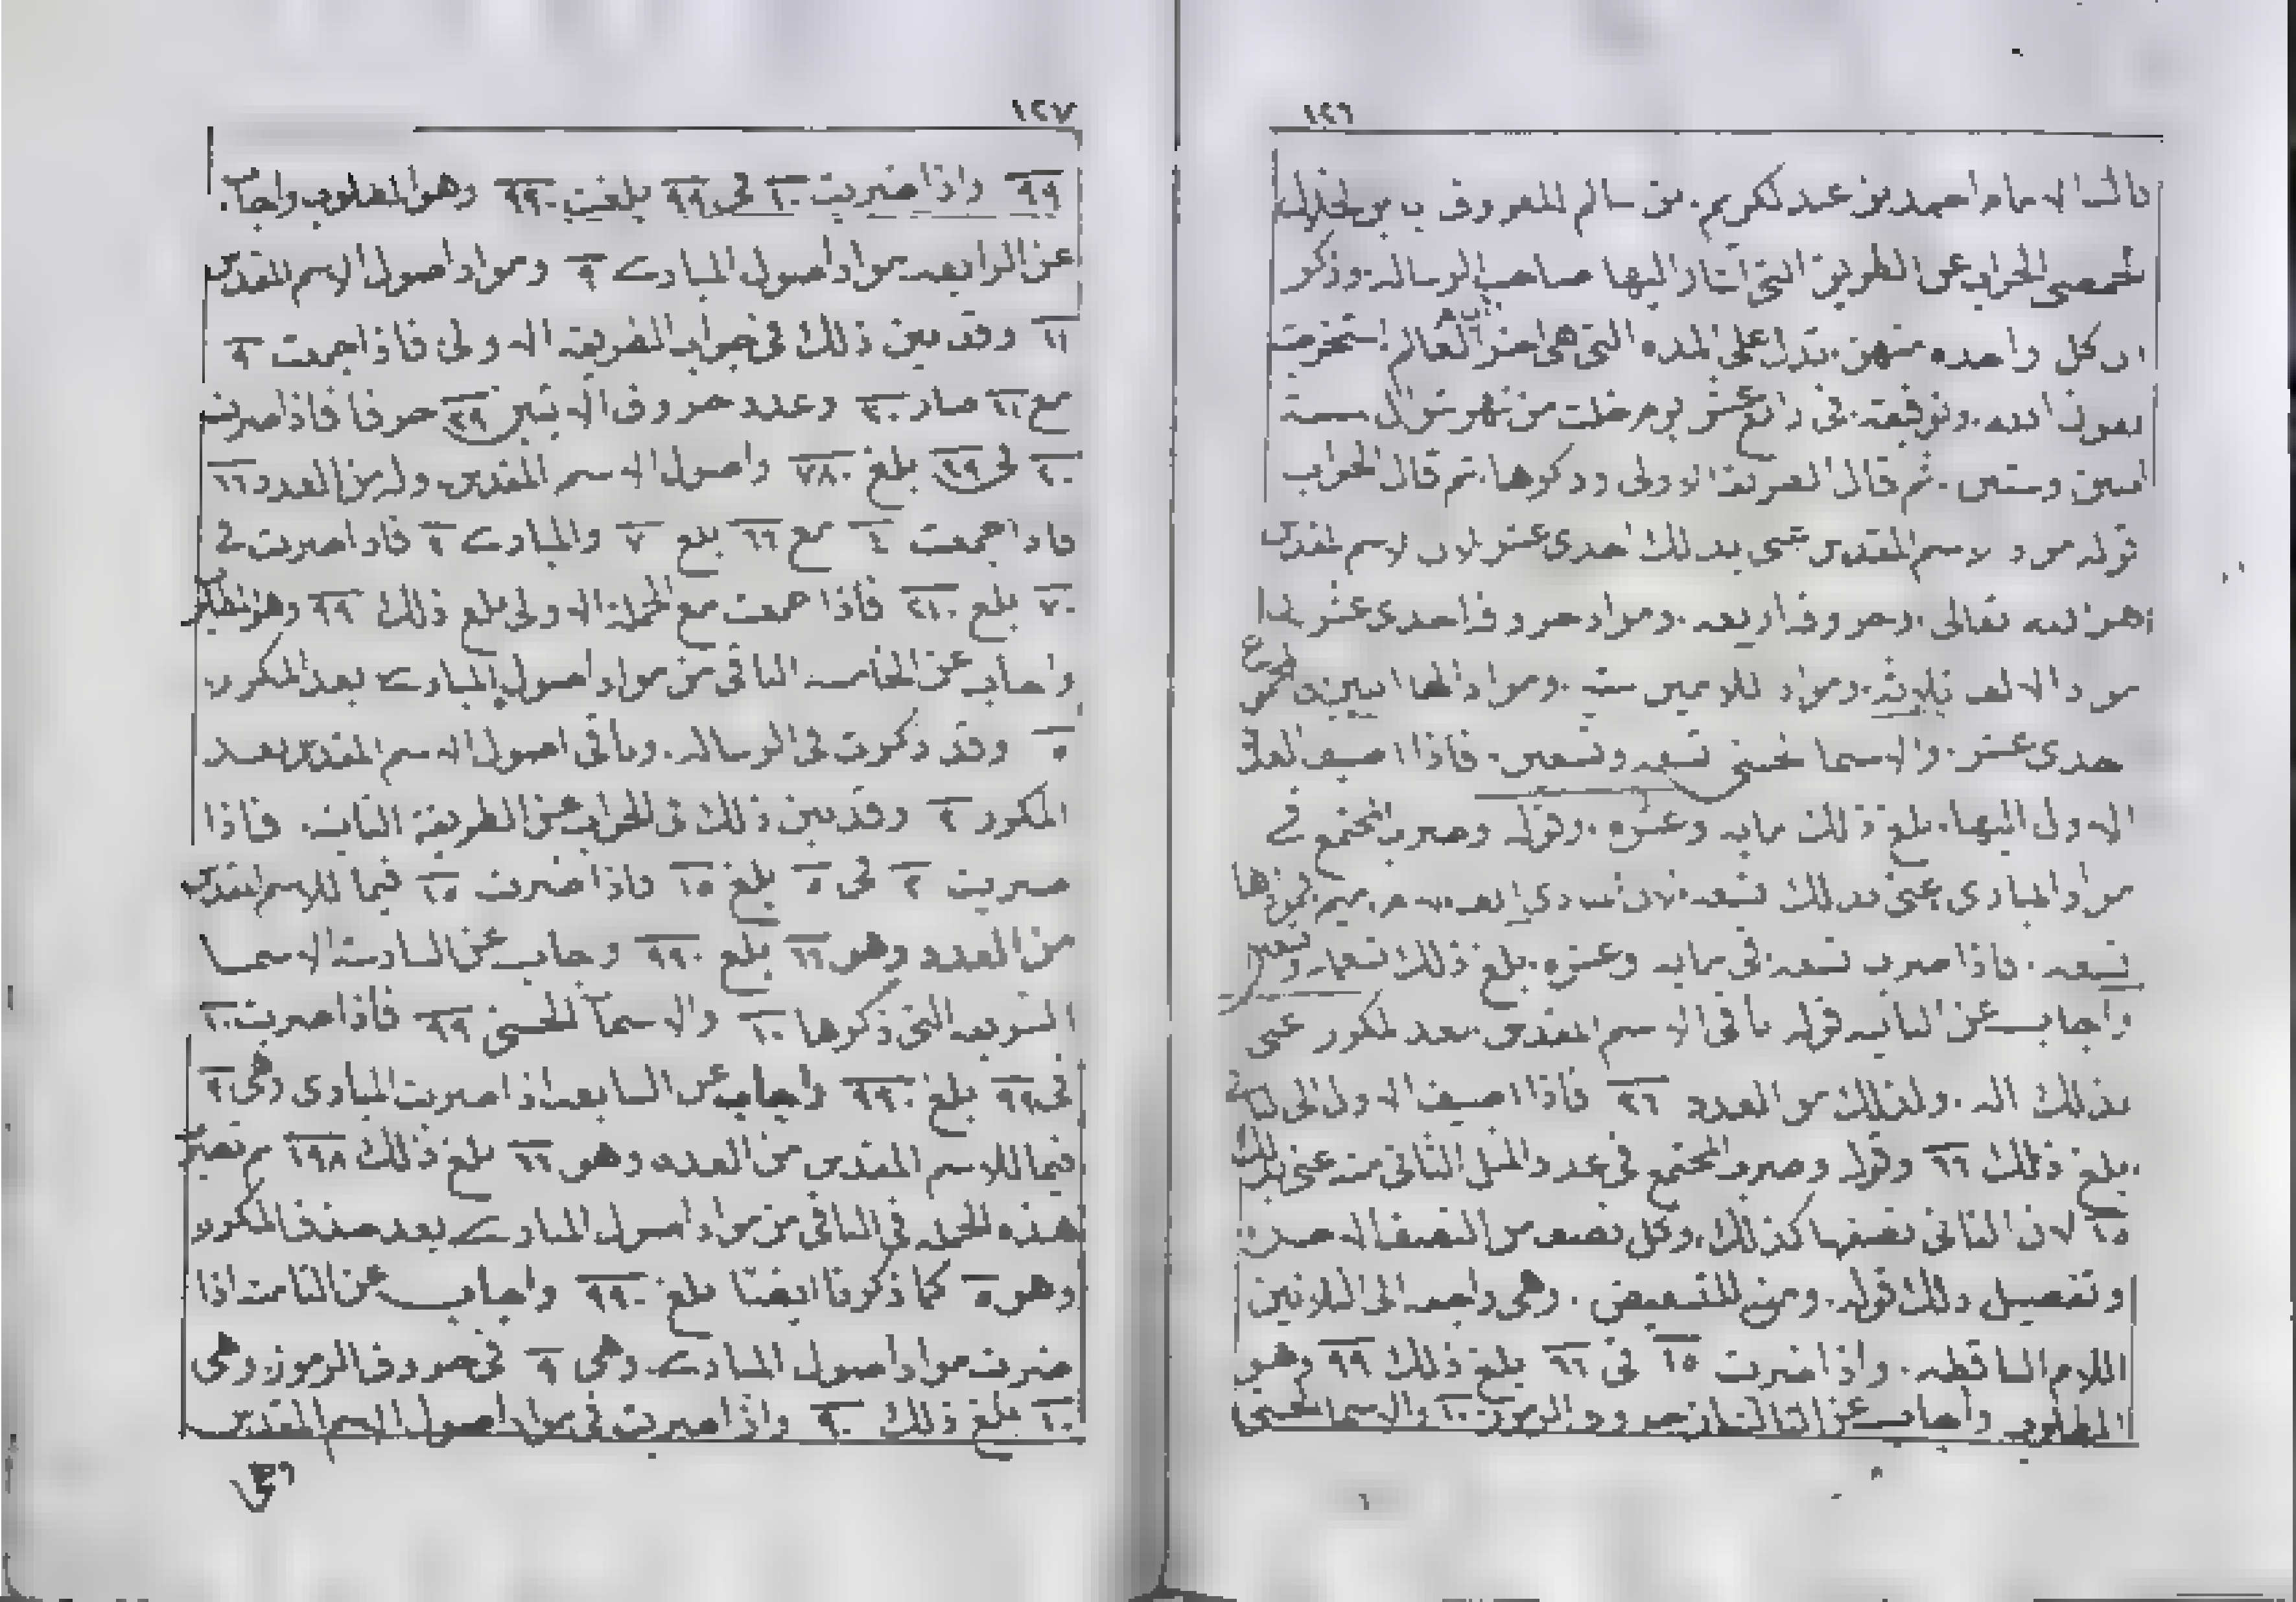 ١٢٦
قال الامام احمد بن عبد الكريم بن سالم المعروف بابن الخلال
الحمصي الجواب عن الطريق التي اشار اليها صاحب الرسالة وذكر
ان كل واحده منهن تدل على المده التي هي اخر العالم استخرجت
بعون الله وتوفيقه في رابع عشر يوم خلت من شهر شوال سنة
اثنين وستين ثم قال الطريقة الاولى وذكرها ثم قال الجواب
قوله مواد الاسم المقدس عنى بذلك احدى عشر لان الاسم المقدس
هو الله تعالى وحروفه اربعه ومواد حروفه احدى عشر
مواد الالف ثلاثة ومواد اللامين ستة ومواد الها اثنين
احدى عشر والاسما الحسنى تسعه وتسعين فاذا اضيف العدد
الاول اليها بلغ ذلك مايه وعشره وقوله وضرب المجتمع في
مواد المبادى عنى بذلك تسعه لان المبادى الف لام ميم
تسعه فاذا ضرب تسعه في مايه وعشره بلغ ذلك تسعمايه وتسعين
واجاب عن الثانيه قوله باقي الاسم المقدس بعد المكرر عنى
بذلك اله ولذلك من العدد ٣٦ فاذا اضيف الاول الى
بلغ ذلك ٦٦ وقوله وضرب المجتمع في عدد المثل الثاني منه عنى بذلك
١٥ لان الثاني نصفها كذلك وكل نصف من النصف الا
وتفصيل ذلك قوله ومن للتبعيض وهي راجعه الى الثلاثين
اللام الساقطه واذا ضربت ١٥ في ٦٦ بلغ ذلك ٩٩٠ وهو
المطلوب واجاب عن الثالثة ان حروف الرموز ١٠ والاسما الحسنى
١٢٧
٩٩ واذا ضربت ١٠ في ٩٩ بلغت ٩٩٠ وهو المطلوب واجاب
عن الرابعه مواد اصول المبادى ٩ ومواد اصول الاسم المقدس
١١ وقد بين ذلك في جواب الطريقة الاولى فاذا جمعت ٩
مع ١١ صار ٢٠ وعدد حروف الايتين ٣٩ حرفا فاذا ضربت
٢٠ في ٣٩ بلغ ٧٨٠ واصول الاسم المقدس وله من العدد ٦٦
فاذا جمعت ٤ مع ٦٦ بلغ ٧٠ والمبادى ٣ فاذا ضربت في
٧٠ بلغ ٢١٠ فاذا جمعت مع الجملة الاولى بلغ ذلك ٩٩٠ وهو المطلوب
واجاب عن الخامسه الباقي من مواد اصول المبادى بعد المكرر
٥ وقد ذكرت في الرساله وباقي اصول الاسم المقدس بعد
المكرر ٣ وقد بين ذلك في الجواب عن الطريقة الثانية فاذا
ضربت ٣ في ٥ بلغ ١٥ فاذا ضربت ١٥ فيما للاسم المقدس
من العدد وهو ٦٦ بلغ ٩٩٠ وجاب عن السادسة الاسما
الشريفه التي ذكرها ١٠ والاسما الحسنى ٩٩ فاذا ضربت ١٠
في ٩٩ بلغ ٩٩٠ واجاب عن السابعة اذا ضربت المبادى وهي ٣
فيما للاسم المقدس من العدد وهو ٦٦ بلغ ذلك ١٩٨ ثم تضرب
هذه الجمله في الباقي من مواد اصول المبادى بعد حذف المكرر
وهو ٥ كما ذكرنا ايضا بلغ ٩٩٠ واجاب عن الثامنة اذا
ضربت مواد اصول المبادى وهي ٩ في حروف الرموز وهي
١٠ بلغ ذلك ٩٠ واذا ضربت في مواد اصول الاسم المقدس
وهي